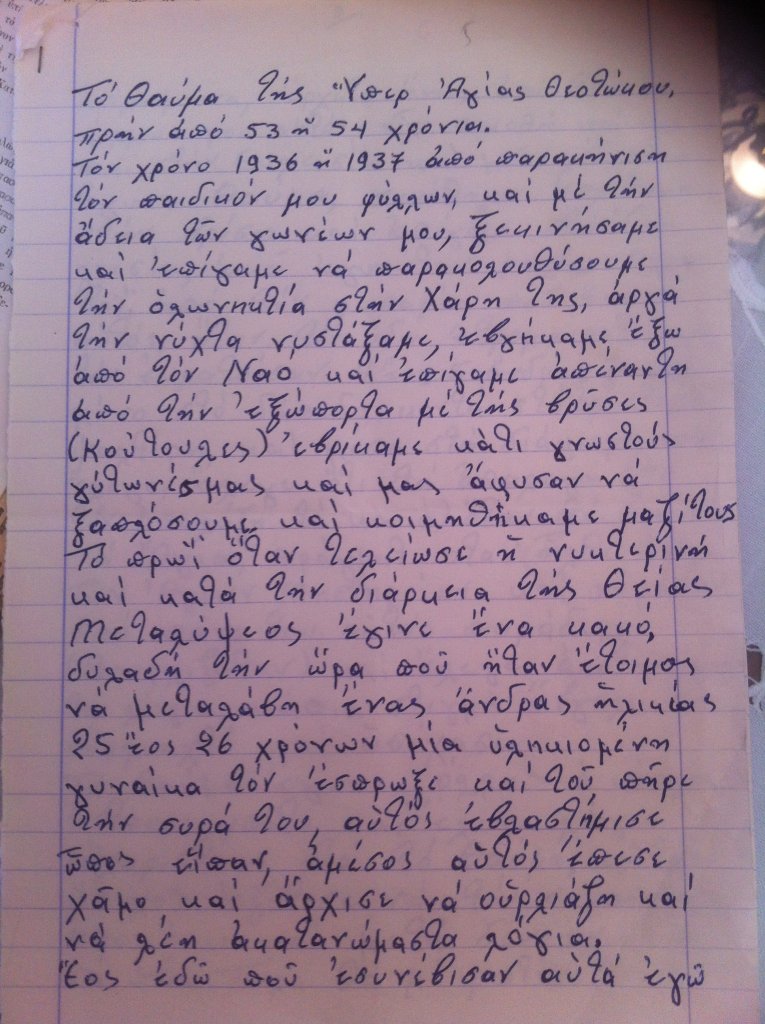 1
Τό θαύμα τής Ὕπερ Ἁγίας Θεοτώκου,
πρήν ἀπό 53 ἤ 54 χρόνια.
Τόν χρόνο 1936 ἤ 1937 ἀπό παρακήνιση
τόν παιδικόν μου φύλλων, καί μέ τήν
ἄδεια τῶν γωνέων μου, ξεκινήσαμε
καί ἐπίγαμε νά παρακολουθύσουμε
τήν ὁλωνηκτία στήν Χάρη Της, ἀργά
τήν νύχτα νυστάξαμε, ἐβγήκαμε ἔξω
ἀπό τόν Ναο καί ἐπίγαμε ἀπέναντη
ἀπό τήν ἐξώπορτα μέ τής βρῦσες
(Κούτουλες) ἐβρίκαμε κάτι γνωστούς
γύτωνές μας καί μας ἄφυσαν νά
ξαπλόσουμε καί κοιμηθήκαμε μαζί τους
Τό πρωΐ ὅταν τελείωσε ἤ νυκτερινή
καί κατά τήν διάρκεια τής Θείας
Μεταλύψεος ἔγινε ἕνα κακό,
δυλαδή τήν ὥρα ποῦ ἤταν ἕτοιμος
νά μεταλάβη ἕνας ἄνδρας ἡλικίας
25 ἕος 26 χρόνων μία ὑληκιομένη
γυναίκα τόν ἔσπρωξε καί τοῦ πῆρε
τήν συρά του, αὐτός ἐβλαστήμισε
ὅπος εἴπαν, ἀμέσος αὐτός ἔπεσε
χᾶμο καί ἄρχισε νά οὐρλιάζη καί
νά λέη ἀκατανώμαστα λόγια.
Ἕος ἐδῶ ποῦ ἐσυνέβισαν αὐτά ἐγῶ